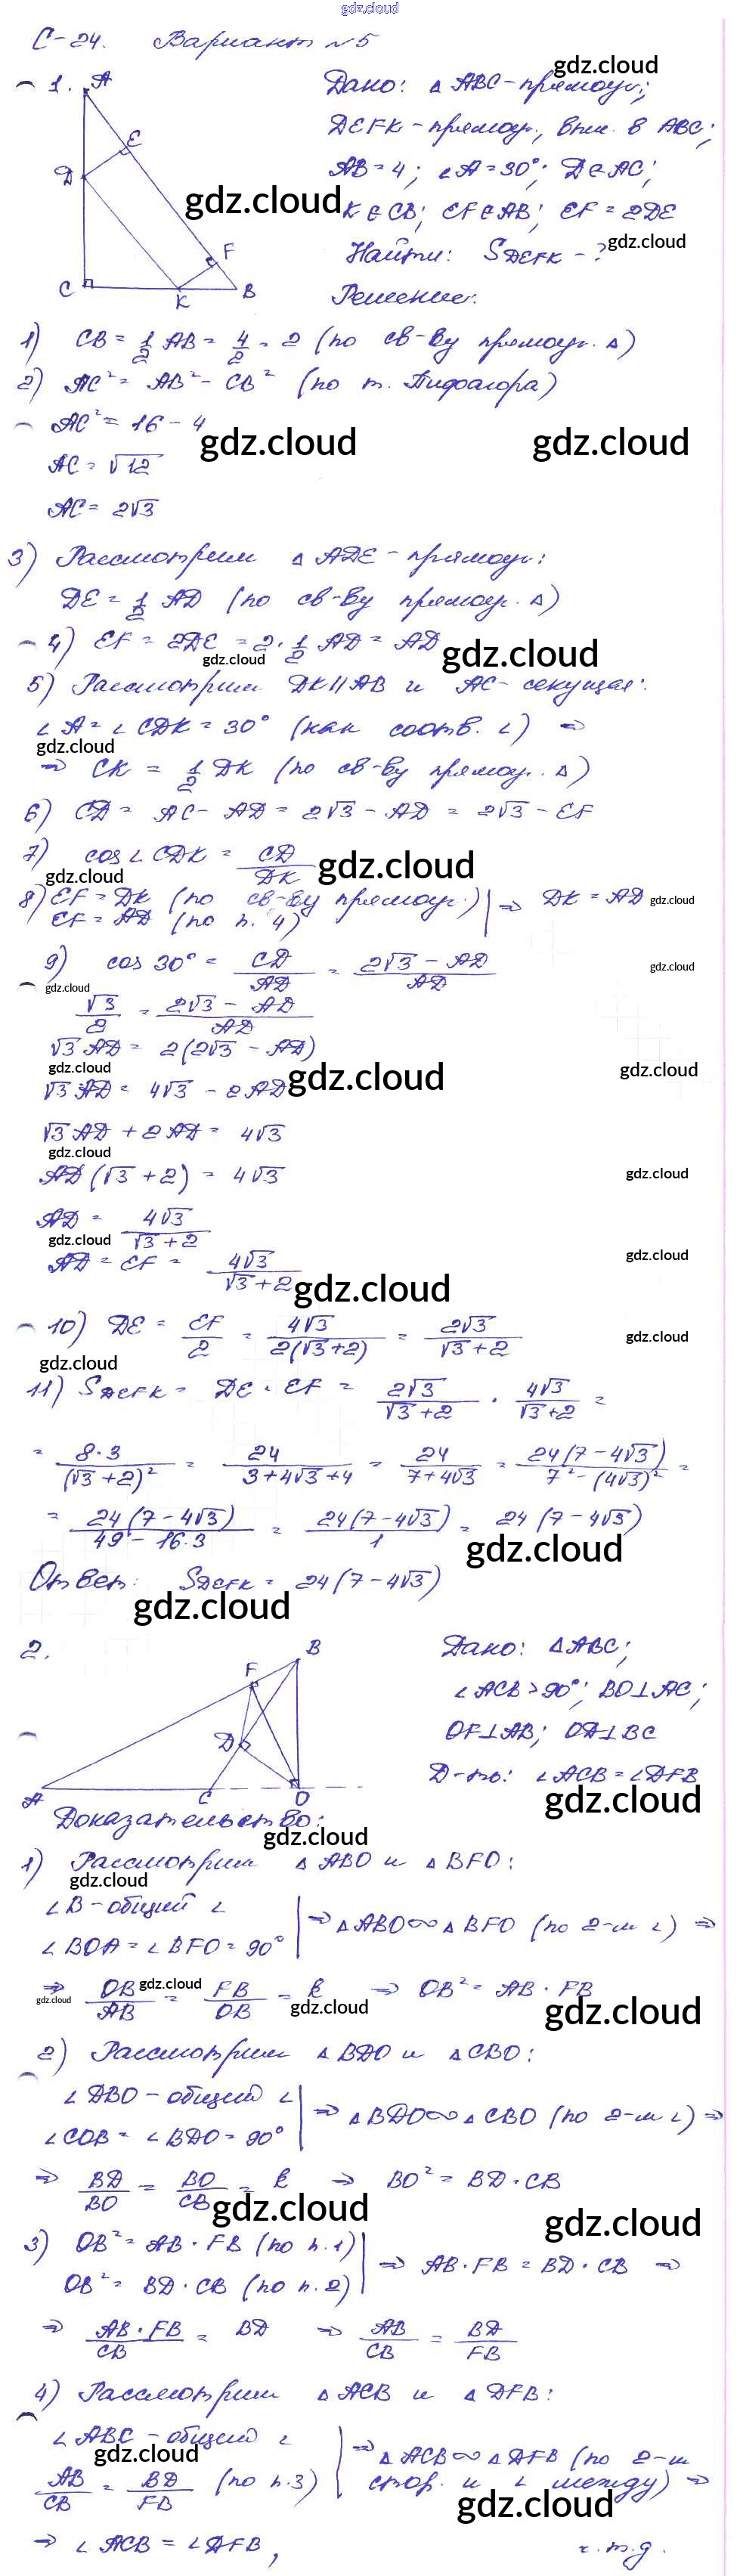 gdz.cloud
С-24. Вариант №5
gdz.cloud
1. A
Дано: △ ABC - прямоуг.;
E
DEFK - прямоуг., впис. в ABC;
D
AB = 4; ∠A = 30°; D∈AC;
gdz.cloud
K∈CB; EF∈AB; EF = 2DE
F
gdz.cloud
Найти: S_DEFK - ?
C K B
Решение:
1) CB = 1/2 AB = 4/2 = 2 (по св-ву прямоуг. △)
2) AC² = AB² - CB² (по т. Пифагора)
AC² = 16 - 4
gdz.cloud gdz.cloud
AC = √12
AC = 2√3
3) Рассмотрим △ ADE - прямоуг.:
DE = 1/2 AD (по св-ву прямоуг. △)
4) EF = 2DE = 2 · 1/2 AD = AD
gdz.cloud gdz.cloud
5) Рассмотрим DK || AB и AC - секущая:
∠A = ∠CDK = 30° (как соотв. ∠) ⇒
gdz.cloud
⇒ CK = 1/2 DK (по св-ву прямоуг. △)
6) CD = AC - AD = 2√3 - AD = 2√3 - EF
7) cos ∠CDK = CD/DK
gdz.cloud gdz.cloud
8) EF = DK (по св-ву прямоуг.) | ⇒ DK = AD
gdz.cloud
EF = AD (по п. 4)
9) cos 30° = CD/AD = (2√3 - AD)/AD
gdz.cloud
gdz.cloud
√3/2 = (2√3 - AD)/AD
√3 AD = 2(2√3 - AD)
gdz.cloud gdz.cloud gdz.cloud
√3 AD = 4√3 - 2AD
√3 AD + 2AD = 4√3
gdz.cloud
AD(√3 + 2) = 4√3
gdz.cloud
AD = 4√3/(√3 + 2)
gdz.cloud gdz.cloud
AD = EF = 4√3/(√3 + 2)
gdz.cloud
10) DE = EF/2 = 4√3/(2(√3+2)) = 2√3/(√3+2)
gdz.cloud
gdz.cloud
11) S_DEFK = DE · EF = 2√3/(√3+2) · 4√3/(√3+2) =
= 8·3/(√3+2)² = 24/(3+4√3+4) = 24/(7+4√3) = 24(7-4√3)/(7²-(4√3)²) =
= 24(7-4√3)/(49-16·3) = 24(7-4√3)/1 = 24(7-4√3)
gdz.cloud
Ответ: S_DEFK = 24(7-4√3)
gdz.cloud
2. B
Дано: △ABC;
F
∠ACB > 90°; BO⊥AC;
D
OF⊥AB; OD⊥BC
A C O
Д-ть: ∠ACB = ∠DFB
gdz.cloud
Доказательство:
gdz.cloud
1) Рассмотрим △ ABO и △ BFO:
gdz.cloud
∠B - общий ∠ | ⇒ △ABO ∞ △BFO (по 2-м ∠) ⇒
∠BOA = ∠BFO = 90°
⇒ OB/AB = FB/OB = k ⇒ OB² = AB · FB
gdz.cloud
gdz.cloud gdz.cloud gdz.cloud
2) Рассмотрим △ BDO и △CBO:
∠DBO - общий ∠ | ⇒ △BDO ∞ △CBO (по 2-м ∠) ⇒
∠COB = ∠BDO = 90°
⇒ BD/BO = BO/CB = k ⇒ BO² = BD · CB
gdz.cloud gdz.cloud
3) OB² = AB · FB (по п. 1) | ⇒ AB · FB = BD · CB ⇒
OB² = BD · CB (по п. 2)
⇒ AB · FB/CB = BD ⇒ AB/CB = BD/FB
4) Рассмотрим △ ACB и △ DFB:
∠ABC - общий ∠ | ⇒ △ACB ∞ △DFB (по 2-м
gdz.cloud
AB/CB = BD/FB (по п. 3) | стор. и ∠ между) ⇒
gdz.cloud
⇒ ∠ACB = ∠DFB, ч.т.д.